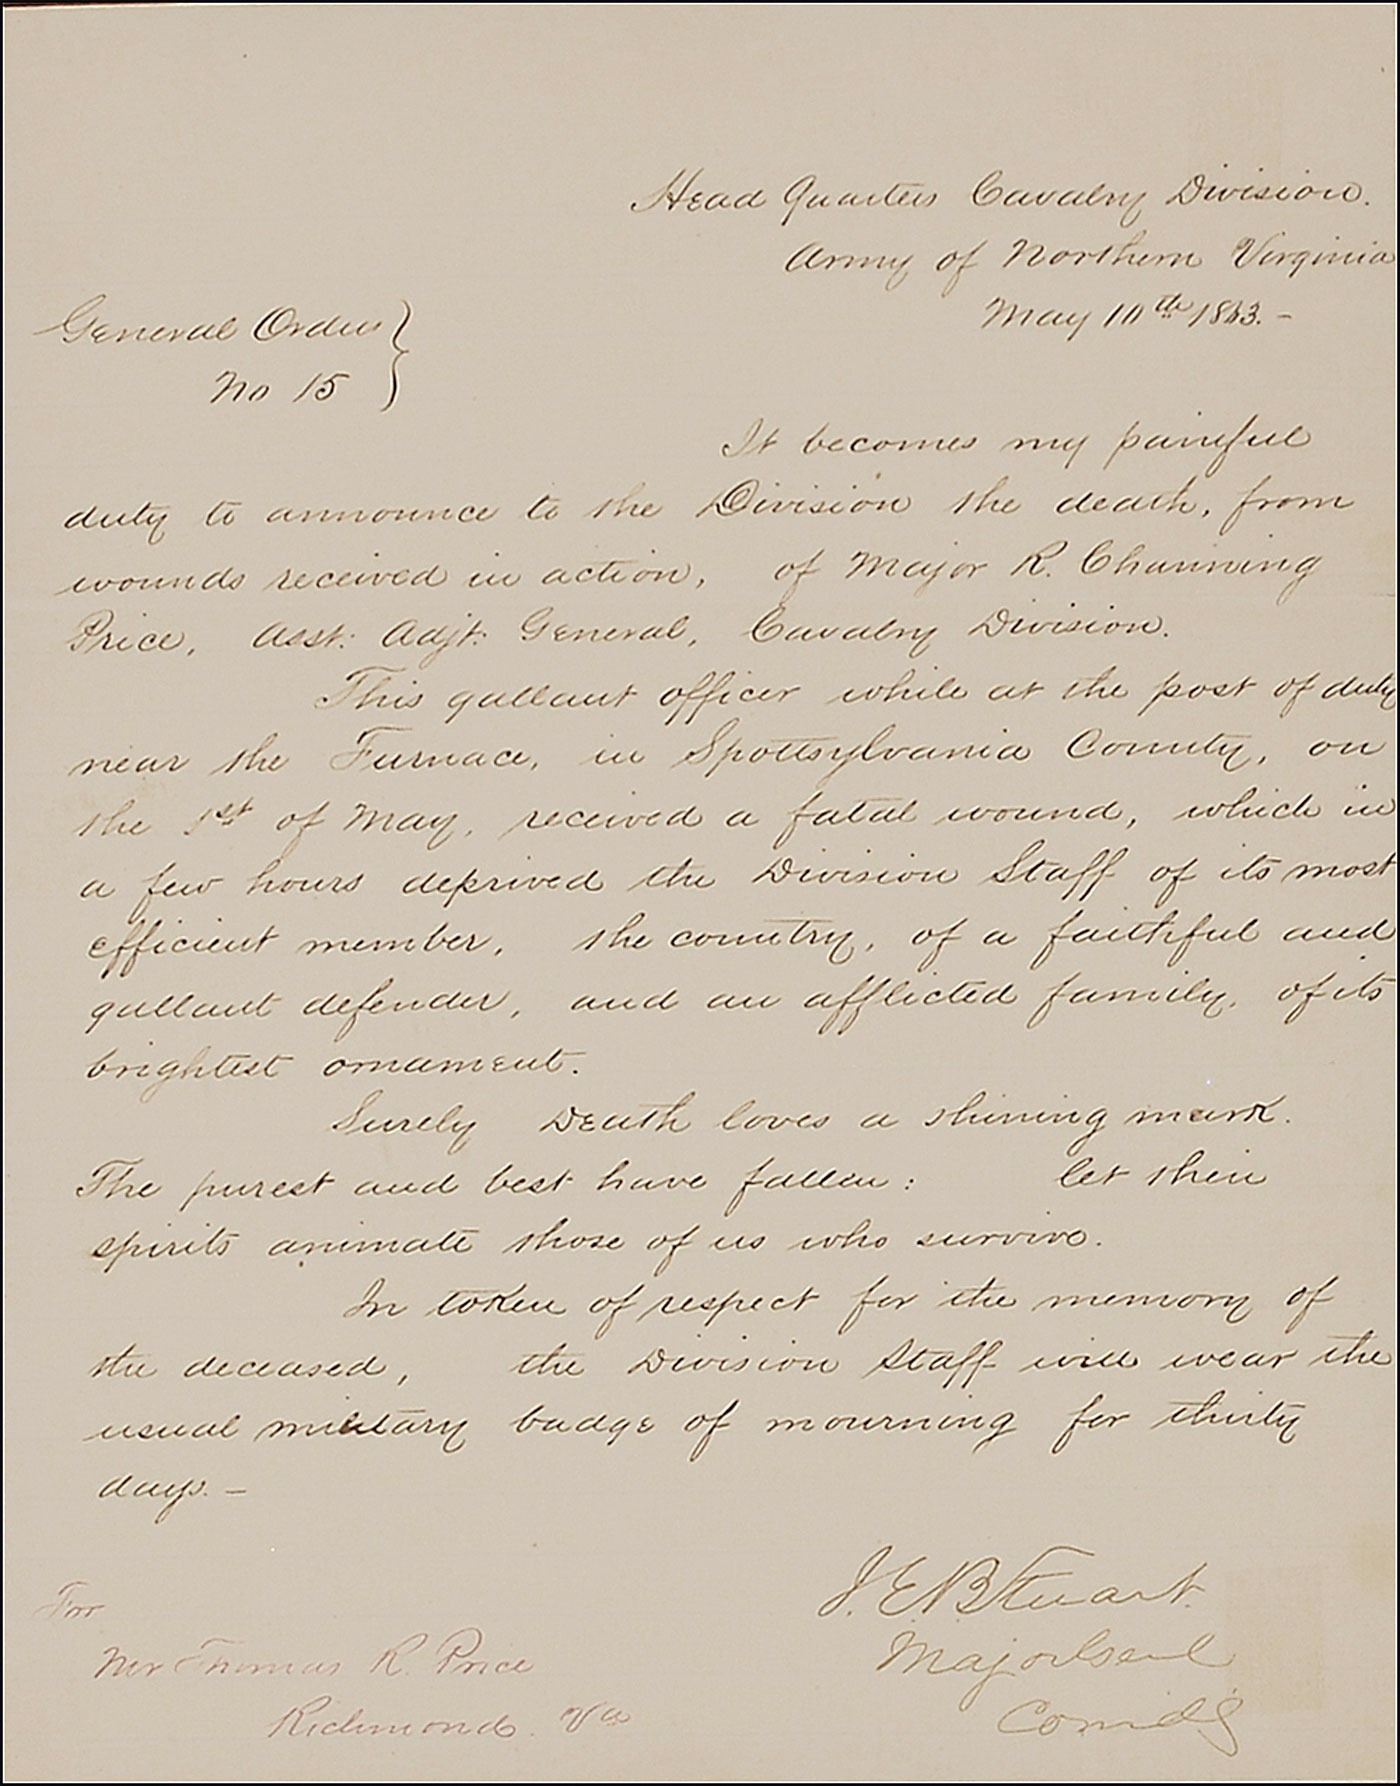 Head Quarters Cavalry Division.
Army of Northern Virginia
May 10th 1863. -
General Orders
No 15
It becomes my painful
duty to announce to the Division the death, from
wounds received in action, of Major R. Channing
Price, Asst: Adjt: General, Cavalry Division.
This gallant officer while at the post of duty
near the Furnace, in Spottsylvania County, on
the 1st of May, received a fatal wound, which in
a few hours deprived the Division Staff of its most
efficient member, the country, of a faithful and
gallant defender, and an afflicted family, of its
brightest ornament.
Surely Death loves a shining mark.
The purest and best have fallen: let their
spirits animate those of us who survive.
In token of respect for the memory of
the deceased, the Division Staff will wear the
usual military badge of mourning for thirty
days. -
J. E B Stuart.
Major Genl
Comdg
For
Mr Thomas R. Price
Richmond. Va